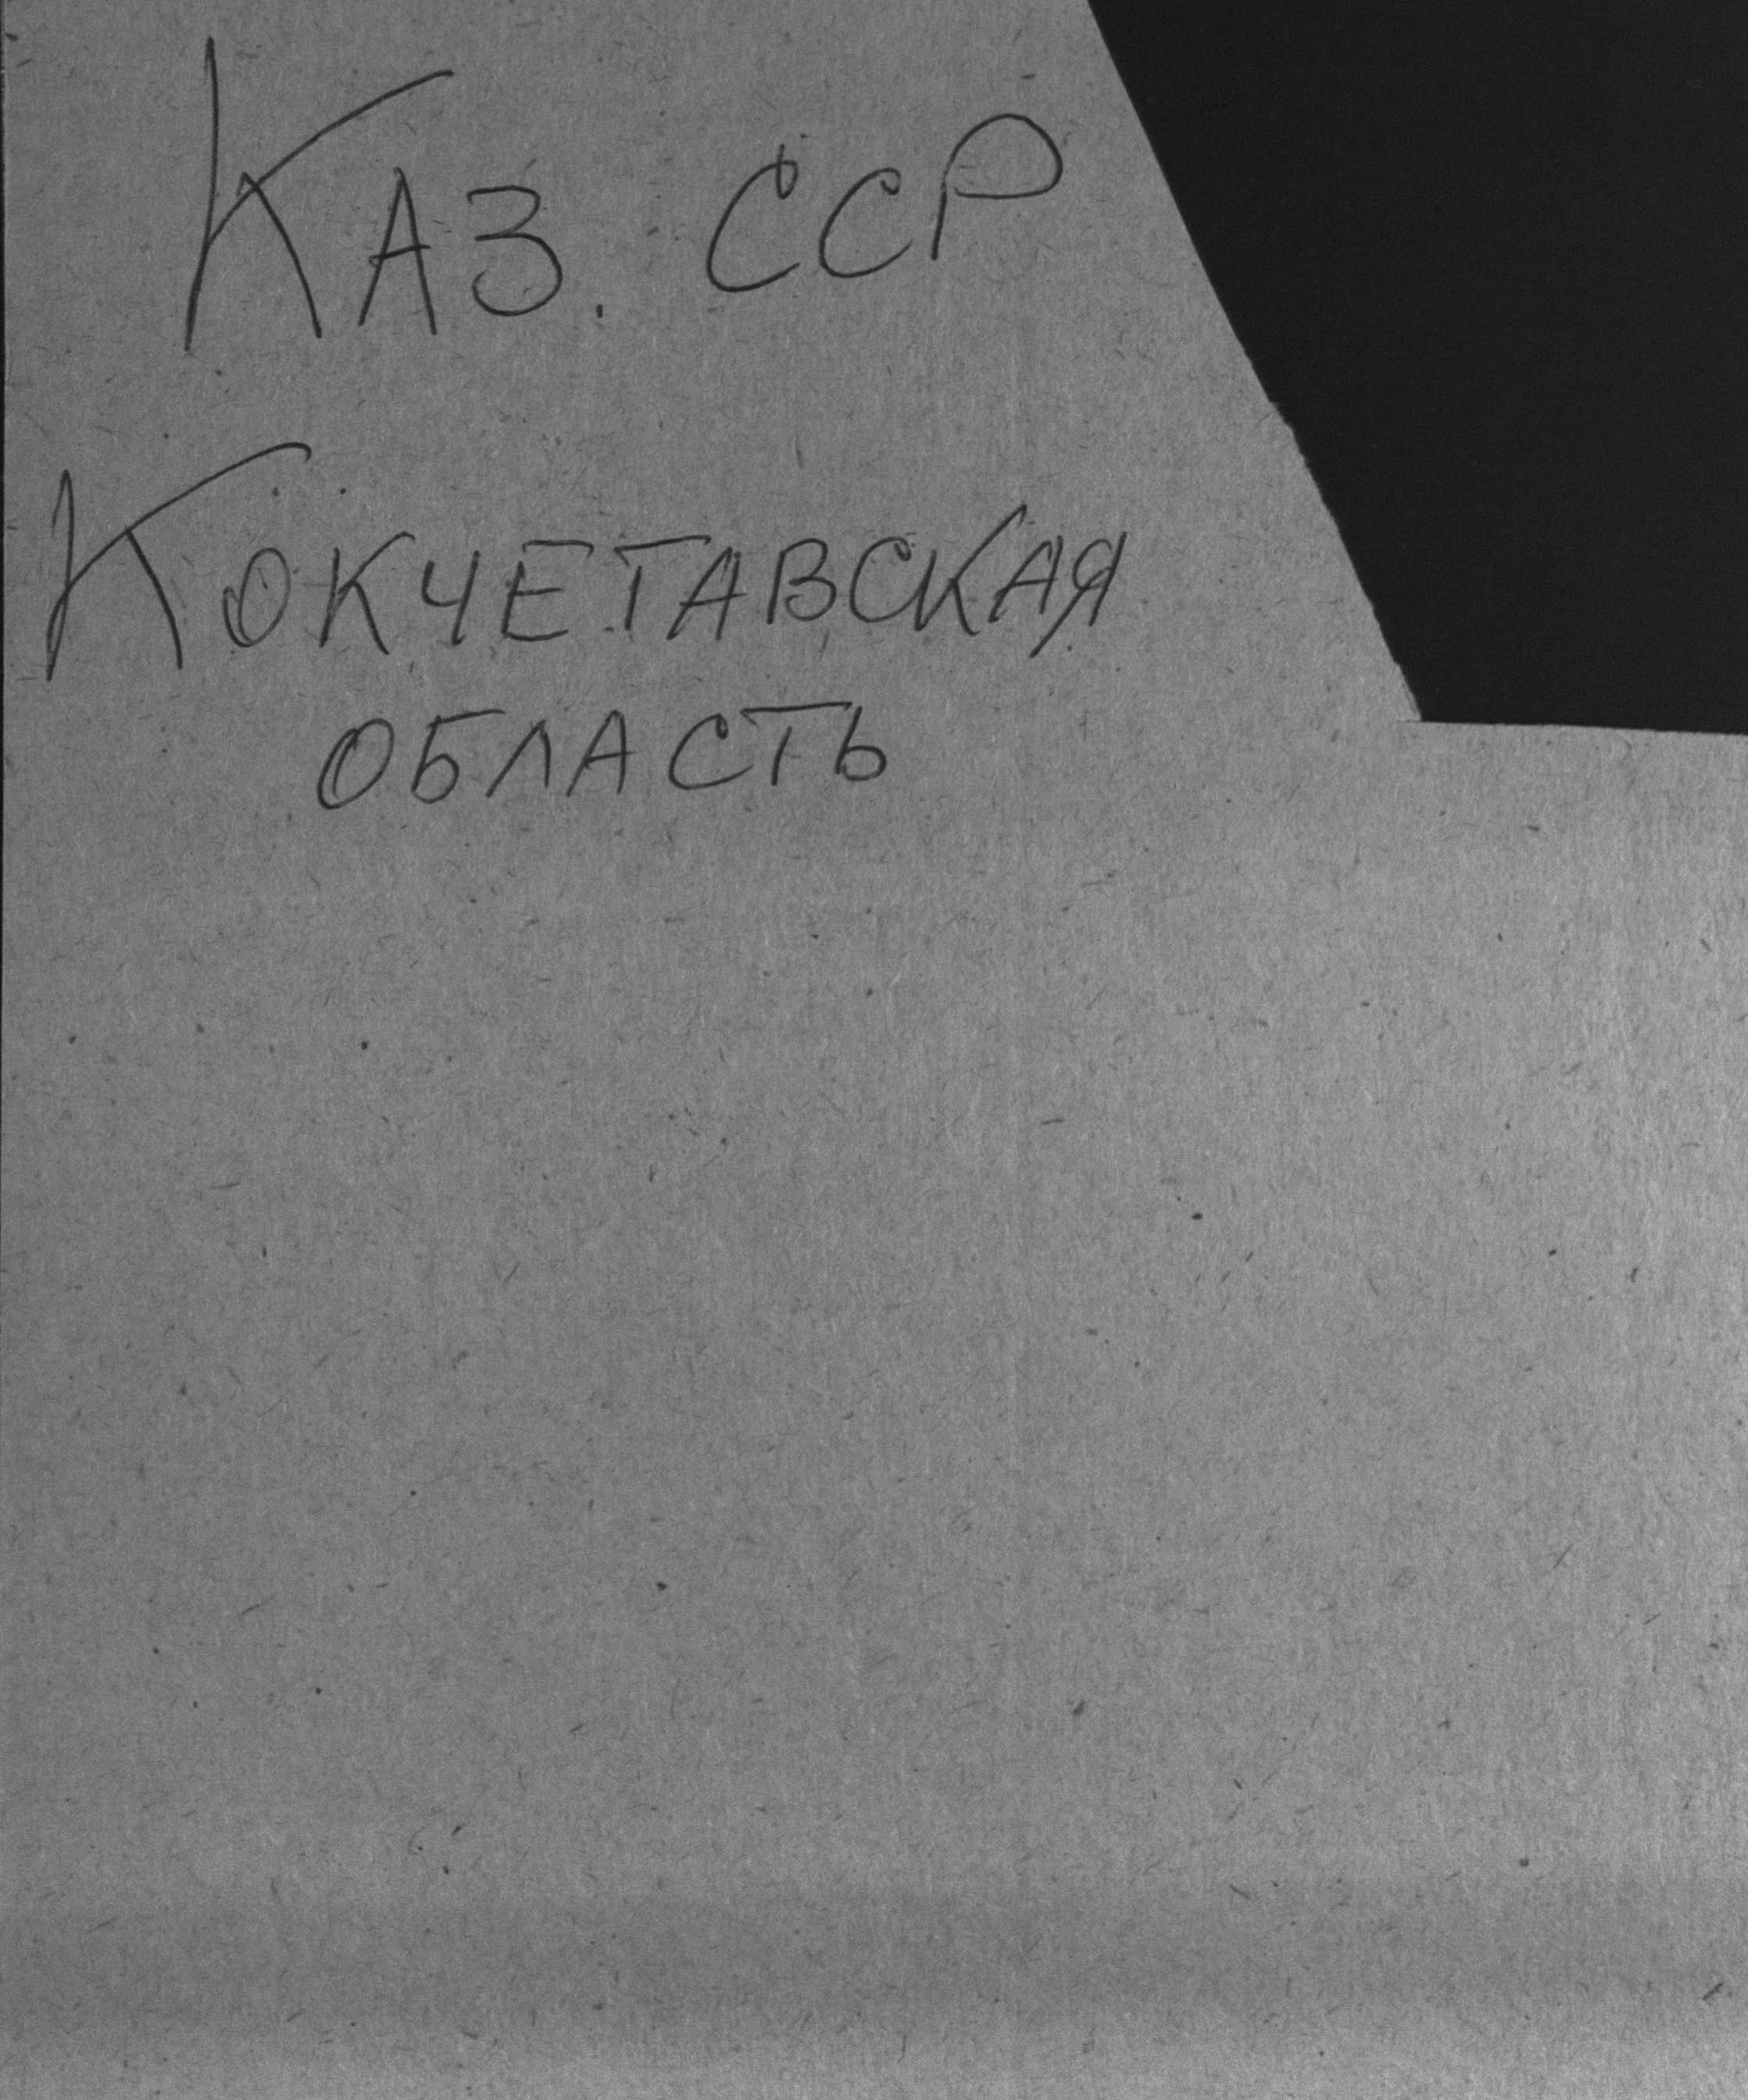 Каз. ССР
Кокчетавская
область